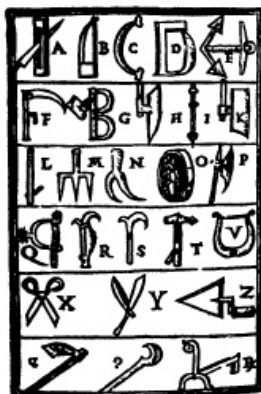 A B C D E
F G H I K
L M N O P
R S T V
X Y Z
?